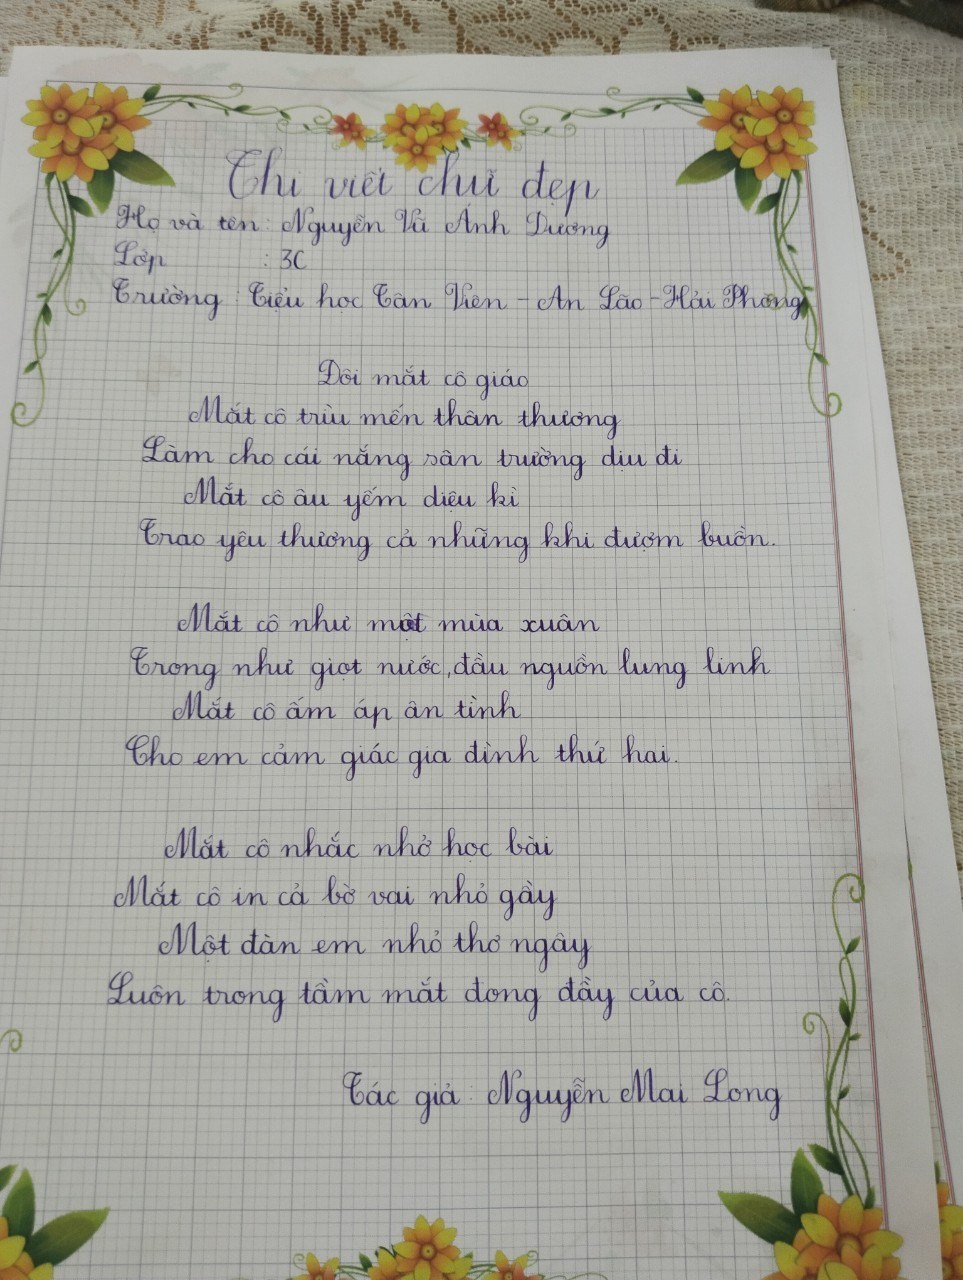 Thi viết chữ đẹp
Họ và tên: Nguyễn Vũ Ánh Dương
Lớp : 3C
Trường: Tiểu học Tân Viên - An Lão - Hải Phòng
Đôi mắt cô giáo
Mắt cô trìu mến thân thương
Làm cho cái nắng sân trường dịu đi
Mắt cô âu yếm diệu kì
Trao yêu thương cả những khi đượm buồn.
Mắt cô như một mùa xuân
Trong như giọt nước, đầu nguồn lung linh
Mắt cô ấm áp ân tình
Cho em cảm giác gia đình thứ hai.
Mắt cô nhắc nhở học bài
Mắt cô in cả bờ vai nhỏ gầy
Một đàn em nhỏ thơ ngây
Luôn trong tầm mắt đong đầy của cô.
Tác giả: Nguyễn Mai Long